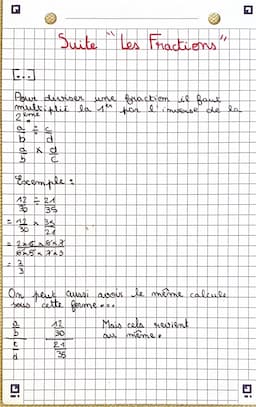 Suite "Les Fractions"
[...]
Pour diviser une fraction il faut
multiplié la 1ère par l'inverse de la
2ème.
a/b ÷ c/d
a/b × d/c
Exemple :
12/30 ÷ 21/35
= 12/30 × 35/21
= 2×6×5×7 / 6×5×7×3
= 2/3
On peut aussi avoir le même calcule
sous cette forme ...
a/b / c/d 12/30 / 21/35 Mais cela revient
au même.